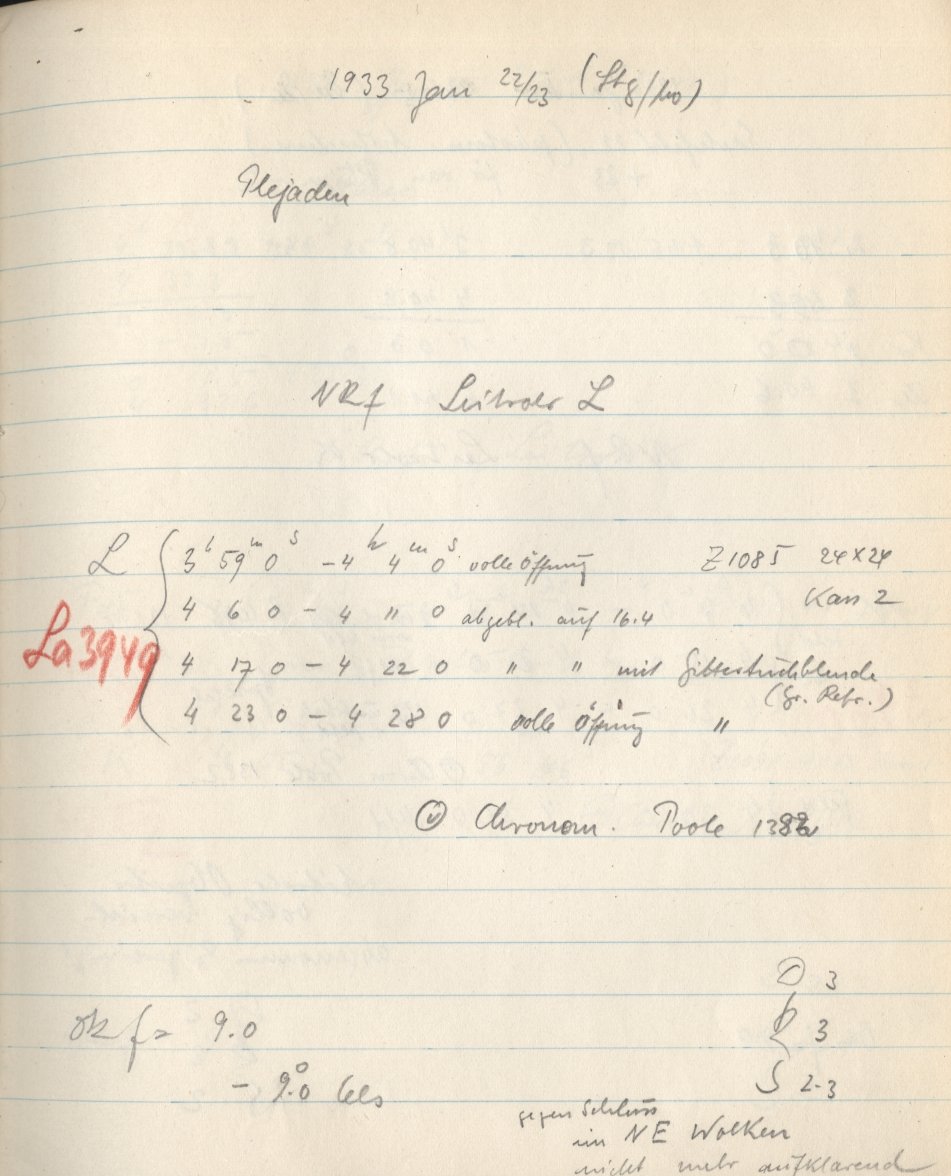 1933 Jan 22/23 (Stg/Mo)
Plejaden
NRf Leitrohr L
L
La 3949
3h 59m 0s - 4h 4m 0s volle Öffnung Z1085 24x24
4 6 0 - 4 11 0 abgebl. auf 16.4 Kass 2
4 17 0 - 4 22 0 " " mit Gittertuchblende
(Gr. Refr.)
4 23 0 - 4 28 0 volle Öffnung "
Chronom. Poole
3
Ok f = 9.0 3
- 9.0° Cels S 2-3
gegen Schluss
im NE Wolken
nicht mehr aufklarend